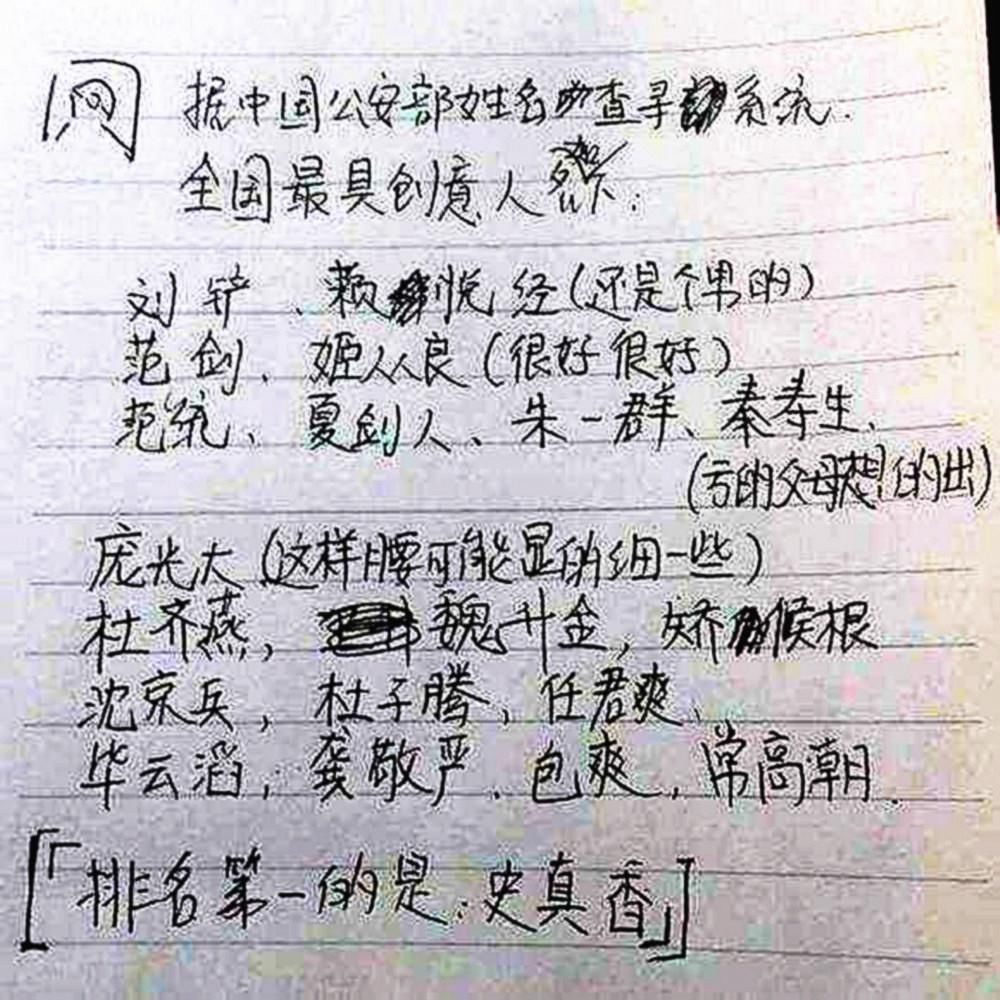 问 据中国公安部姓名查寻系统.
全国最具创意人名如下:
刘铲、赖悦经(还是个男的)
范剑、姬从良(很好很好)
范统、夏剑人、朱一群、秦寿生、
(亏的父母想的出)
庞光大(这样腰可能显的细一些)
杜齐燕,魏升金,矫候根
沈京兵,杜子腾,任君爽、
华云滔,龚敬严、包爽,常高潮.
[「排名第一的是:史真香」]